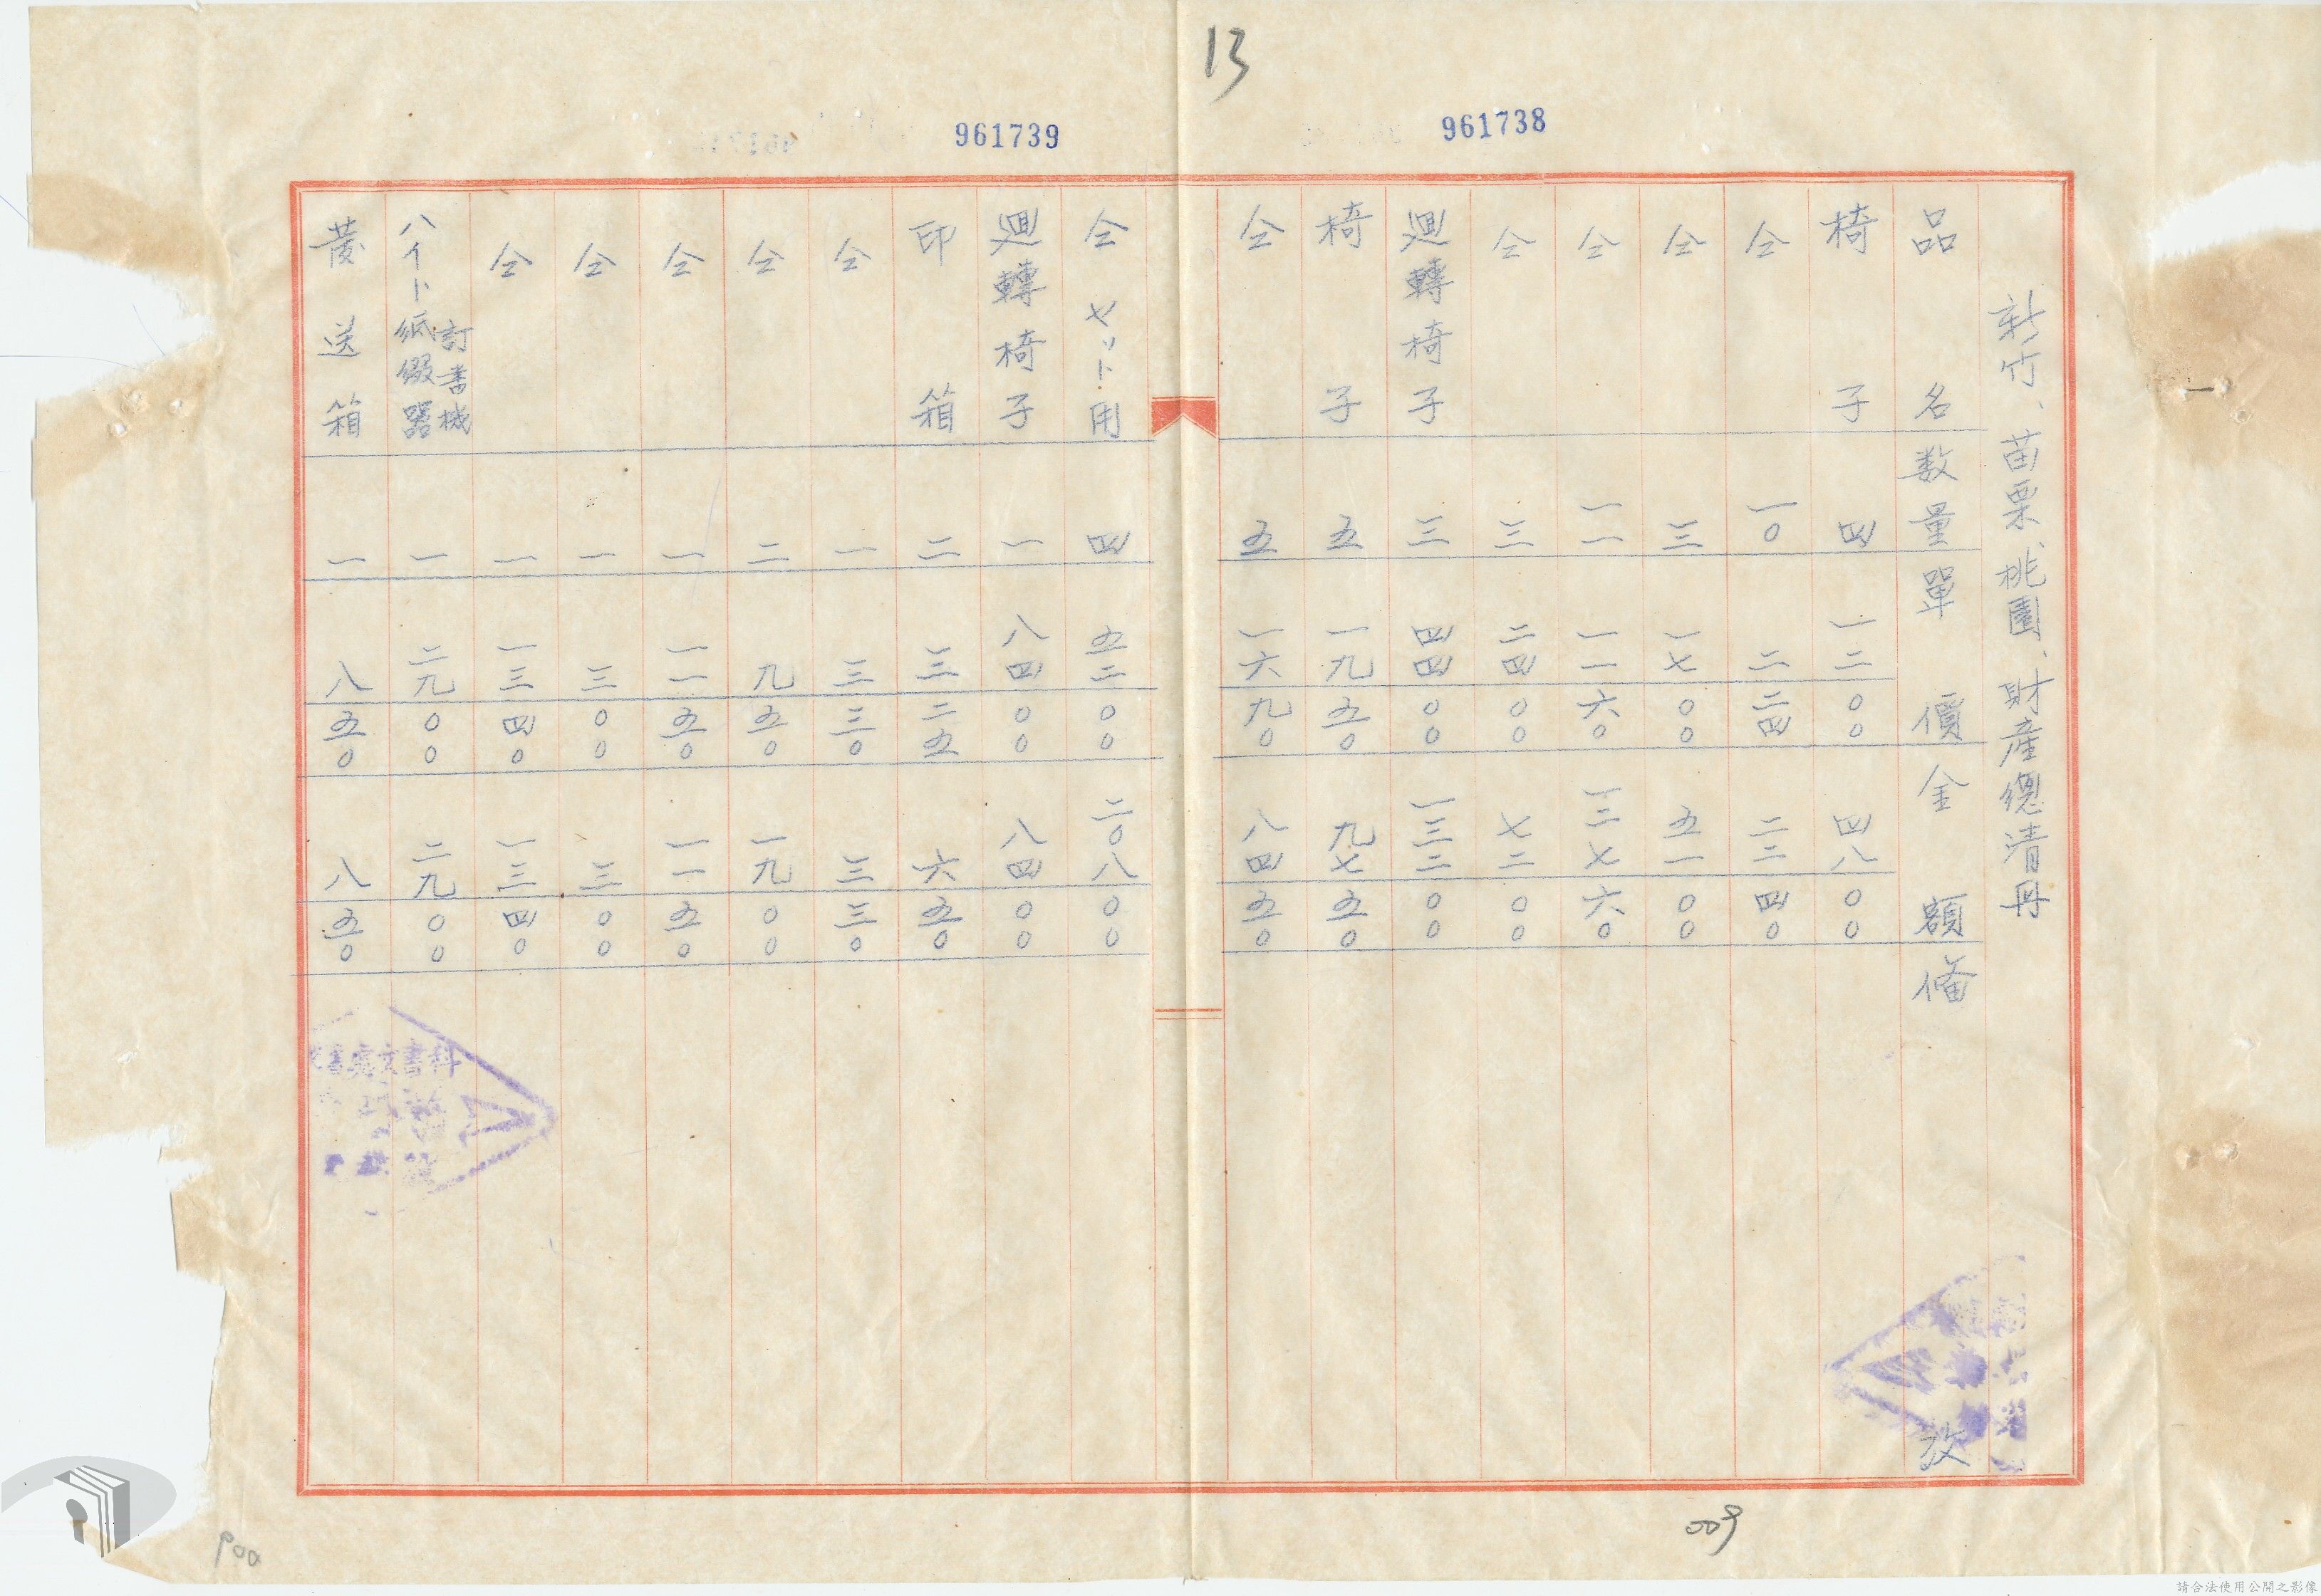 13
961738
961739
新竹、苗栗、桃園、財產總清冊
品名 数量 單價 金額 備攷
椅子 四 一二 〇〇 四八 〇〇
仝 一〇 二 二四 二二 四〇
仝 三 一七 〇〇 五一 〇〇
仝 一一 一一 六〇 一二七 六〇
仝 三 二四 〇〇 七二 〇〇
廻轉椅子 三 四四 〇〇 一三二 〇〇
椅子 五 一九 五〇 九七 五〇
仝 五 一六 九〇 八四 五〇
仝 セット用 四 五二 〇〇 二〇八 〇〇
廻轉椅子 一 八四 〇〇 八四 〇〇
印箱 二 三 二五 六 五〇
仝 一 三 三〇 三 三〇
仝 二 九 五〇 一九 〇〇
仝 一 一一 五〇 一一 五〇
仝 一 三 〇〇 三 〇〇
仝 一 一三 四〇 一三 四〇
訂書機
ハイト紙綴器 一 二九 〇〇 二九 〇〇
發送箱 一 八 五〇 八 五〇
處文書科
009
請合法使用公開之影像